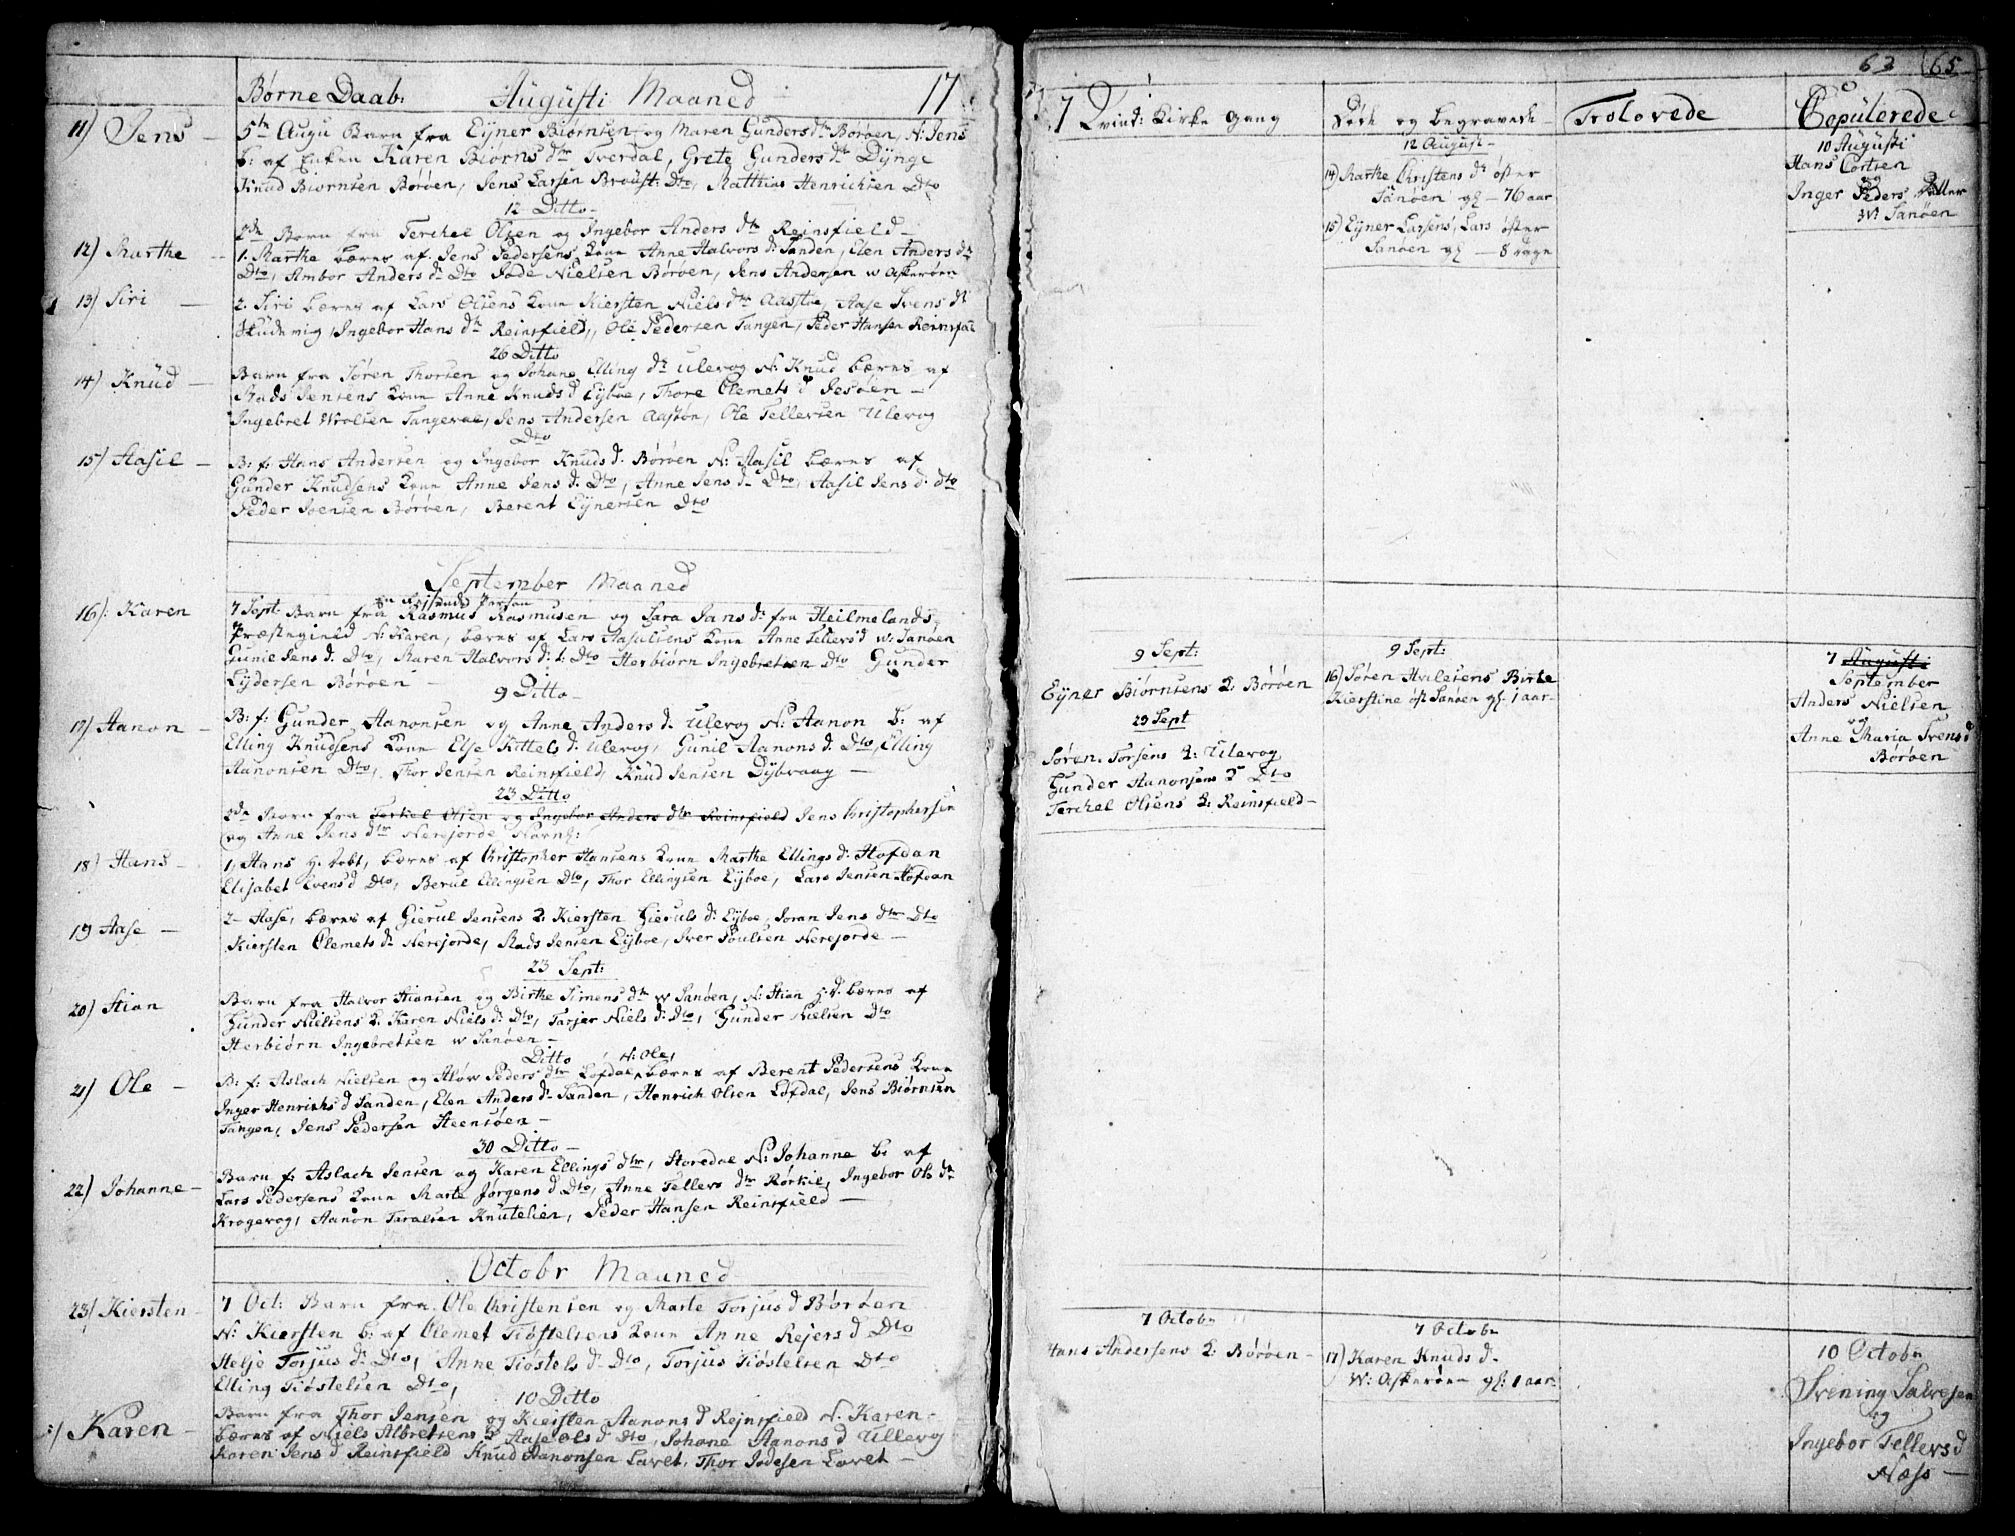 Børne Daab: Augusti Maaned 17
11) Jens
5te Augu Barn fra Eyner Biørnsen og Maren Gunders dtr Børøen, N: Jens
b: af Enken Karen Biørns dtr Tverdal, Grete Gunders dtr Dynge
Knud Biørnsen Børøen, Jens Larsen Dto, Matthias Henrichsen Dto
12 Ditto
2de Børn fra Terchel Olsen og Ingebor Anders dtr Reinsfield
12) Marthe
1. Marthe bæres af Jens Pedersens kone Anne Halvors d: Sanden, Elen Anders dtr
Dto, Ambor Anders d: Dto Jøde Nielsen Børøen, Jens Andersen w Askerøen
13) Siri
2. Siri bæres af Lars Olsens kone Kiersten Niels dtr Aastø, Aase Svens d:
Skudevig, Ingebor Hans dtr Reinsfield, Ole Pedersen Tangen, Peder Hansen Reinsf
26 Ditto
14) Knud
Barn fra Søren Thorsen og Johane Elling dtr Ulevog N: Knud bæres af
Mads Jensens kone Anne Knuds d Eyboe, Thore Clemets d Gesøen
Ingebret Wrolsen Tangevae, Jens Andersen Aastøn, Ole Tellevsen Ulevog
Dto
15) Aasil
B: f: Hans Andersen og Ingebor Knuds d: Børøen N: Aasil bæres af
Gunder Knudsens kone Anne Jens d: Dto, Anne Jens d: Dto, Aasil Jens d: dto
Peder Svensen Børøen, Berent Eynersen Dto
September Maaned
16): Karen
en Rejsende Person
7 Sept: Barn fra Rasmus Rasmusen og Sara Jans d: fra Heilmelands
Præstegield N: Karen, bæres af Lars Aasulsens kone Anne Tellevs d w: Sanøen
Gunil Jens d: Dto, Maren Halvors d: Dto Herbiørn Ingebretsen Dto Gunder
Eydersen Børøen
9 Ditto
17) Aanon
B: f: Gunder Aanonsen og Anne Anders d: Ulevog N: Aanon b: af
Elling Knudsens kone Else Kittels d: Ulevog, Gunil Aanons d: Dto, Elling
Aanonsen Dto, Thor Jensen Reinsfield, Knud Jensen Dybvaag
23 Ditto
2de Børn fra Terkel Olsen og Ingebor Anders dtr Reinsfield Jens Christophersen
og Anne Jens dtr Nerejorde
18) Hans
1, Hans H. Dobt, bæres af Christopher Hansens kone Marthe Ellings d: Hofdan
Elisabet Evens d Dto, Berul Ellingsen Dto, Thor Ellingsen Eyboe, Lars Jensen Hofdan
19 Aase
2 Aase, bæres af Gierul Jensens K: Kiersten Gieruls d: Eyboe, Joran Jens dtr Dto
Kiersten Clemets d: Nerejorde, Mads Jensen Eyboe, Iver Poulsen Nerejorde
23 Sept:
20) Stian
Barn fra Halvor Stiansen og Birthe Simens dtr w Sanøen, N: Stian H: d. bæres af
Gunder Nielsens K: Karen Niels d: Dto, Tarjer Niels d: Dto, Gunder Nielsen Dto
Herbiørn Ingebretsen w Sanøen
Ditto N: Ole,
21) Ole
B: f: Aslach Nielsen og Aløw Peders dtr Løfdal, bæres af Berent Pedersens kone
Inger Henrichs d Sanden, Elen Anders d: Sanden, Henrich Olsen Løfdal, Jens Biørnsen
Tangen, Jens Pedersen Steensøen
30 Ditto
22) Johanne
Barn f: Aslach Jensen og Karen Ellings dtr, Storedal N: Johanne b: af
Lars Pedersens kone Marte Jørgens d Dto, Anne Tellevs dtr Rørkil, Ingebor Ols dtr
Krogevog, Aanon Taralsen Knutelien, Peder Hansen Reinsfield
Octobr Maaned
23) Kiersten
7 Oct: Barn fra Ole Christensen og Marte Torjus d Børøen
N: Kiersten b: af Clemet Tiøstelsens kone Anne Rejers d Dto
Helje Torjus d: Dto, Anne Tiøstels d: Dto, Torjus Tiøstelsen Dto
Elling Tiøstelsen Dto,
10 Ditto
Karen
Barn fra Thor Jensen og Kiersten Aanons d Rejnsfield N. Karen
bæres af Niels Albretsens K Aase Ols d Dto, Johane Aanons d Ullevog
Karen Jens d Reinsfield Knud Aanonsen Lavet, Thor Jodesen Lavet
63 65
7 Qvind: Kirke gang
Døde og begravede
Trolovede
Copulerede
12 August
14) Marthe Christens d: øster
Sanøen gl 76 aar
15) Eyner Larsens, Lars øster
Sanøen gl 8 dage
10 Augusti
Hans Cortsen
og
Inger Peders Datter
W: Sanøen
9 Sept:
Eyner Biørnsens K: Børøen
23 Sept
Søren Torsens K: Ulevog
Gunder Aanonsens K Dto
Terchel Olsens K: Reinsfield
9 Sept:
16) Søren Halvesens Birte
Kierstine øst Sanøen gl: 1 aar
7 Augusti
September
Anders Nielsen
og
Anne Maria Svens d
Børøen
7 Octobr
Hans Andersens K: Børøen
7 Octobr
17) Karen Knuds d:
W: Askerøen gl: 1 aar
10 Octobr
Svening Salvesen
og
Ingebor Tellevs d
Næss